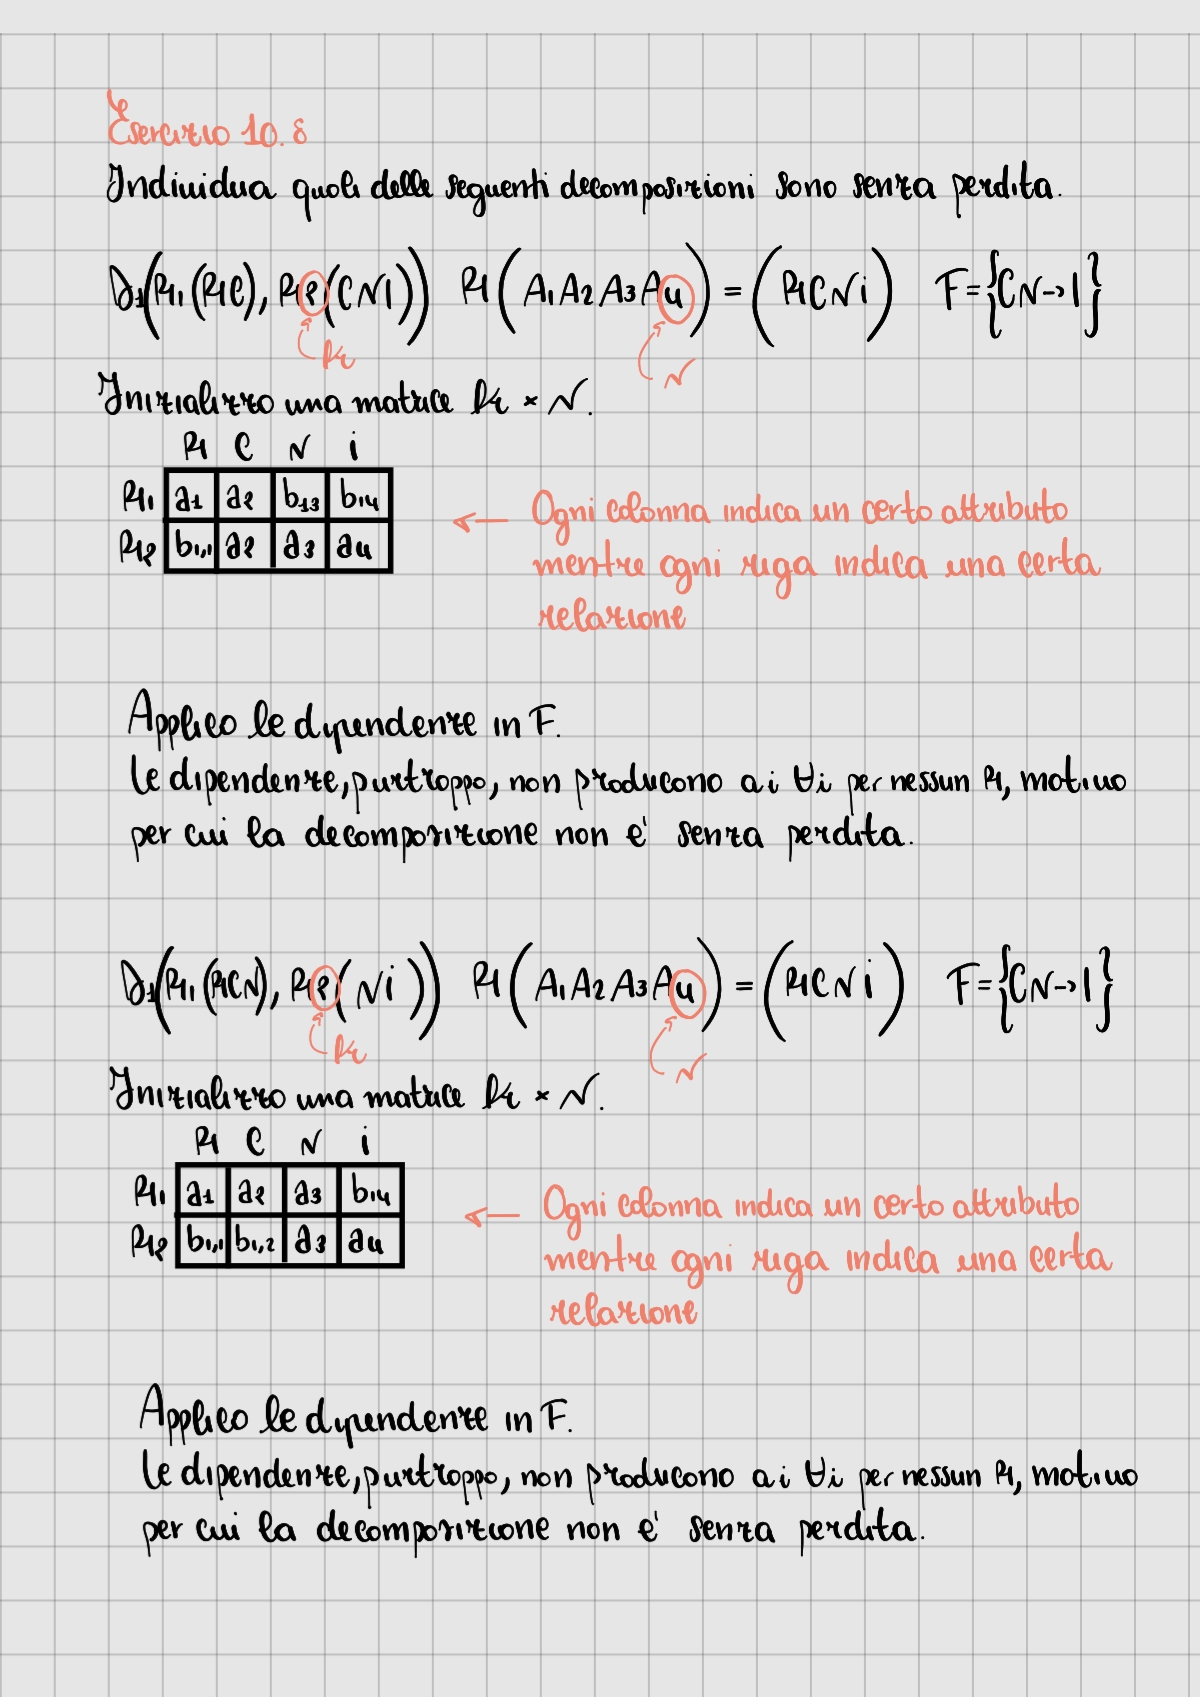 Esercizio 10.8
Individua quali delle seguenti decomposizioni sono senza perdita.
D1(R1(RC), R2(CNI)) R(A1A2A3A4) = (RCNi) F={CN->I}
k N
Inizializzo una matrice k × N.
R C N i
R1 a1 a2 b13 b14
R2 b1,1 a2 a3 a4
<— Ogni colonna indica un certo attributo
mentre ogni riga indica una certa
relazione
Applico le dipendenze in F.
Le dipendenze, purtroppo, non producono ai ∀i per nessun R, motivo
per cui la decomposizione non e' senza perdita.
D1(R1(RCN), R2(Ni)) R(A1A2A3A4) = (RCNi) F={CN->I}
k N
Inizializzo una matrice k × N.
R C N i
R1 a1 a2 a3 b14
R2 b1,1 b1,2 a3 a4
<— Ogni colonna indica un certo attributo
mentre ogni riga indica una certa
relazione
Applico le dipendenze in F.
Le dipendenze, purtroppo, non producono ai ∀i per nessun R, motivo
per cui la decomposizione non e' senza perdita.